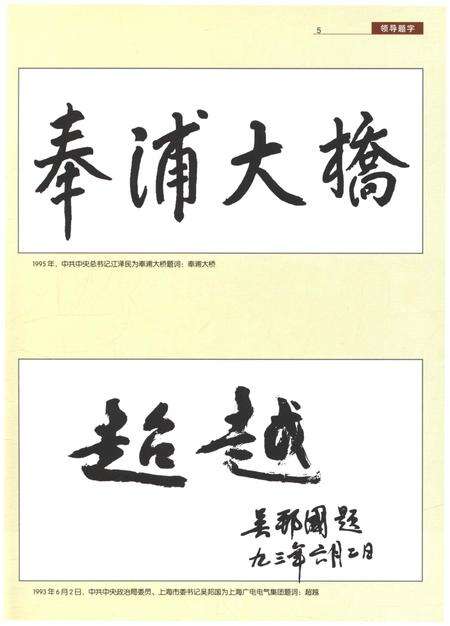 5 领导题字
奉浦大橋
1995年，中共中央总书记江泽民为奉浦大桥题词：奉浦大桥
超越
吴邦國题
九三年六月二日
1993年6月2日，中共中央政治局委员、上海市委书记吴邦国为上海广电电气集团题词：超越